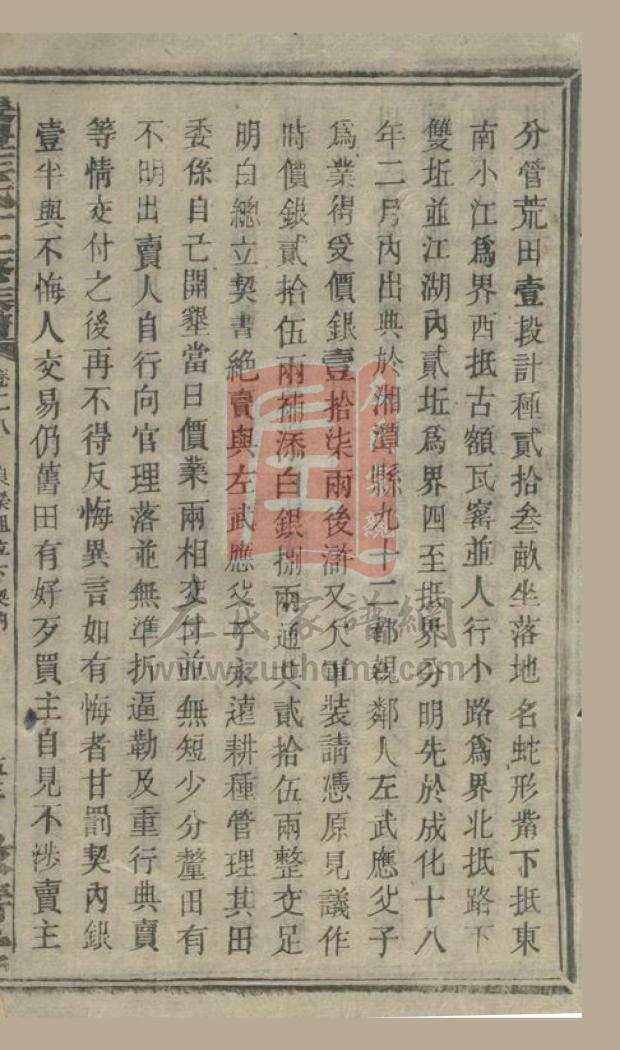 分管荒田壹段計種貳拾叁畝坐落地名蛇形嘴下抵東
南小江爲界西抵古額瓦窰並人行小路爲界北抵路下
雙坵並江湖內貳坵爲界四至抵界分明先於成化十八
年二月內出典於湘潭縣九十二都親鄰人左武應父子
爲業得受價銀壹拾柒兩後滸又欠軍裝請憑原見議作
時價銀貳拾伍兩補添白銀捌兩通共貳拾伍兩整交足
明白總立契書絕賣與左武應父子永遠耕種管理其田
委係自己開墾當日價業兩相交付並無短少分釐田有
不明出賣人自行向官理落並無準折逼勒及重行典賣
等情交付之後再不得反悔異言如有悔者甘罰契內銀
壹半與不悔人交易仍舊田有好歹買主自見不涉賣主
卷二八
左氏家譜網
www.zuohome.com